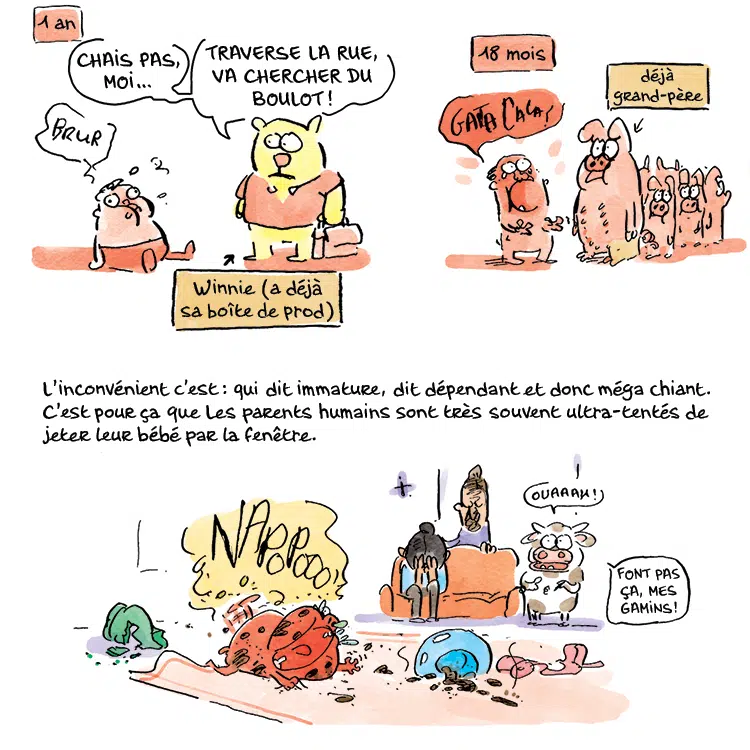 1 an
CHAIS PAS,
MOI...
TRAVERSE LA RUE,
VA CHERCHER DU
BOULOT !
BRUR
Winnie (a déjà
sa boîte de prod)
18 mois
déjà
grand-père
L'inconvénient c'est : qui dit immature, dit dépendant et donc méga chiant.
C'est pour ça que les parents humains sont très souvent ultra-tentés de
jeter leur bébé par la fenêtre.
OUAAAH !
FONT PAS
ÇA, MES
GAMINS !